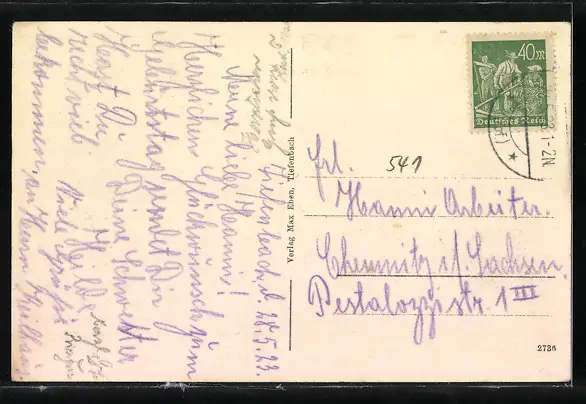 Tiefenbach d. 28.5.23.
Meine liebe Hanni!
Herzlichen Glückwunsch zum
Geburtstag sendet Dir
Deine Schwester
Hilde
Hast Du
recht viel
bekommen.
Viele Grüße
an Herrn
Verlag Max Eben, Tiefenbach
40 M
Deutsches Reich
1-2N
541
Frl.
Hanni Arbeiter.
Chemnitz i/. Sachsen.
Pestalozzistr 1 III
2736